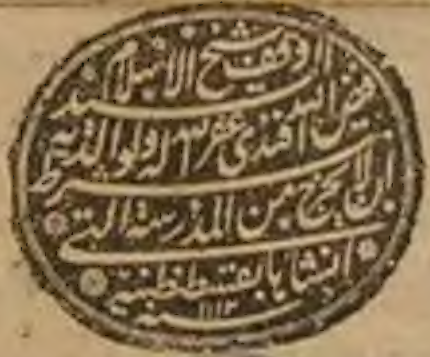 وقف شيخ الاسلام
السيد فيض الله افندى غفر الله له ولوالديه
بشرط ان لا يخرج من المدرسة التى
انشاها بقسطنطينية
سنة ١١١٢